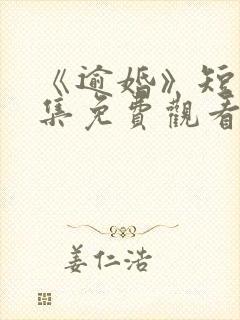 《逾婚》短
集免費觀看
姜仁浩